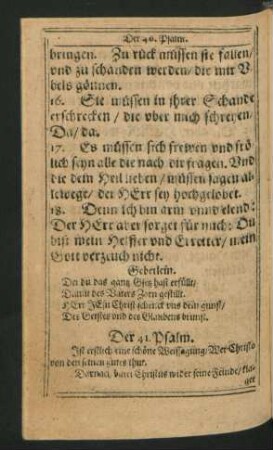 Der 40. Psalm.
bringen. Zu rück müssen sie fallen/
vnd zu schanden werden/ die mir V
bels gönnen.
16. Sie müssen in jhrer Schande
erschrecken / die vber mich schreyen/
Da/ da.
17. Es müssen sich frewen vnd frö
lich seyn alle die nach dir fragen. Vnd
die dein Heil lieben / müssen sagen al
lewege/ der HErr sey hochgelobet.
18. Denn ich bin arm vnnd elend:
Der HErr aber sorget für mich: Du
bist mein Helffer vnd Erretter / mein
Gott verzeuch nicht.
Gebetlein.
Der du das gantz Gsetz hast erfüllt/
Damit des Vaters Zorn gestillt.
HErr JEsu Christ schenck vns dein gunst/
Des Geistes vnd des Glaubens brunst.
Der 41. Psalm.
Ist erstlich eine schöne Weissagung/ Wer Christo
von den seinen gutes thut.
Darnach, Christus wider seine Feinde/ kla-
get